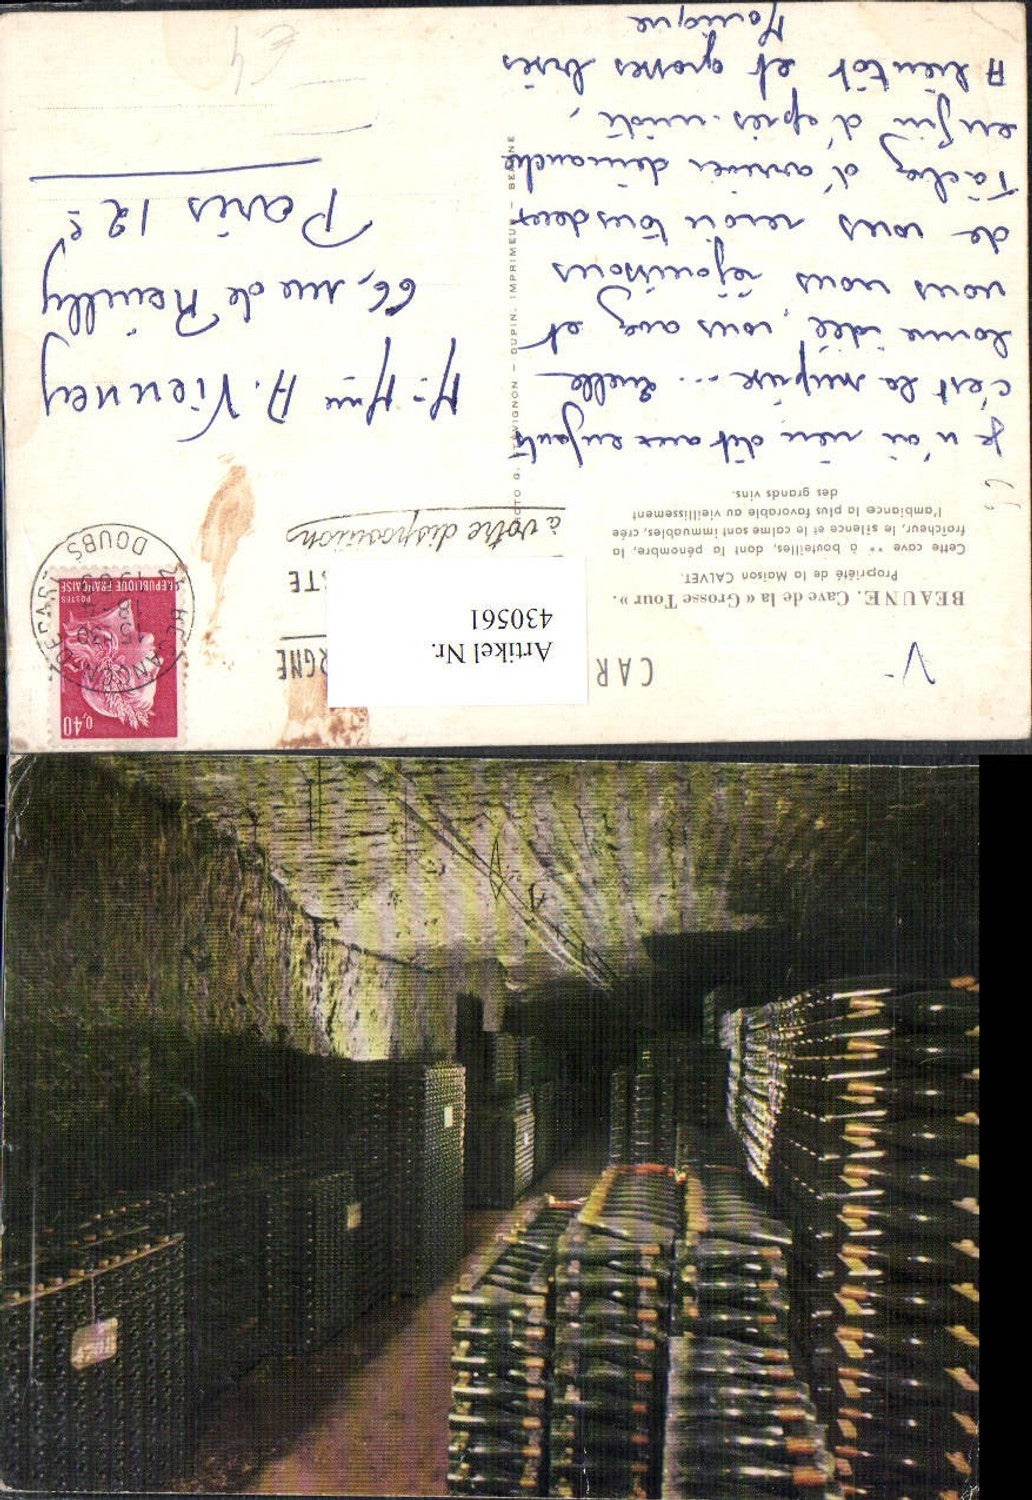 BEAUNE. Cave de la « Grosse Tour ».
Propriété de la Maison CALVET.
Cette cave ** à bouteilles, dont la pénombre, la
fraîcheur, le silence et le calme sont immuables, crée
l'ambiance la plus favorable au vieillissement
des grands vins.
Je n'ai rien dit aux enfants
c'est la surprise... Quelle
bonne idée, vous avez et
nous nous réjouissons
de vous revoir tous deux
Tâchez d'arriver dimanche
en fin d'après-midi,
A bientôt et grosses bises
Monique
PHOTO G. SERVIGNON - DUPIN, IMPRIMEUR - BEAUNE
CAR
Artikel Nr.
430561
à votre disposition
BESANÇON DEPART
15 H 30
18-
DOUBS
0,40
POSTES
REPUBLIQUE FRANÇAISE
M. Mme A. Vienney
66, rue de Reuilly
Paris 12e
€4